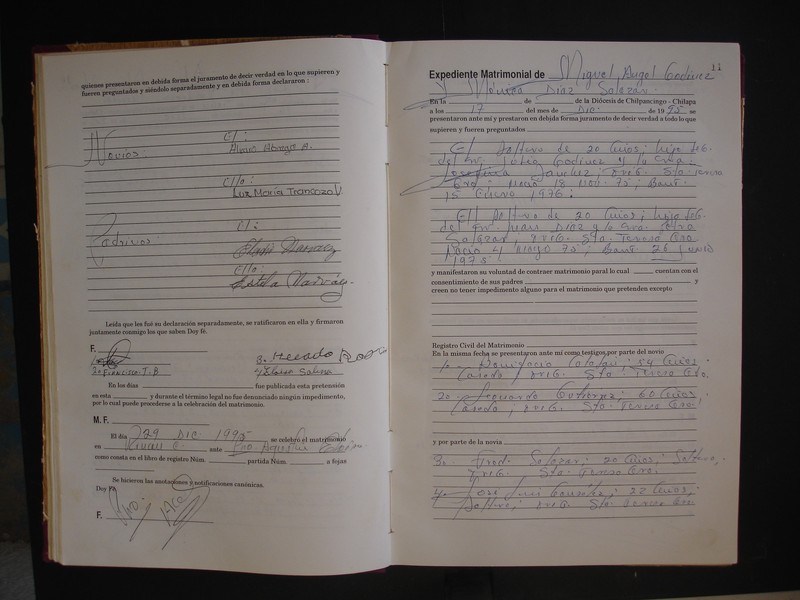 quienes presentaron en debida forma el juramento de decir verdad en lo que supieren y
fueren preguntados y siéndolo separadamente y en debida forma declararon :
El:
Novios: Alvaro Abrego A.
Ella:
Luz María Trancozo V
El:
Padrinos: Eladio Narvaez
Ella:
Estela Narváez
Leida que les fué su declaración separadamente, se ratificaron en ella y firmaron
juntamente conmigo los que saben Doy fé.
F.
2= Francisca J. B
En los días fue publicada esta pretensión
en esta y durante el término legal no fue denunciado ningún impedimento,
por lo cual puede procederse a la celebración del matrimonio.
M. F.
El día 29 Dic. 1995 se celebró el matrimonio
en ante Pbro
como consta en el libro de registro Núm. partida Núm. a fojas
Se hicieron las anotaciones y notificaciones canónicas.
Doy Fé
F.
11
Expediente Matrimonial de Miguel Angel Godinez
y Mónica Díaz Salazar
En la de de la Diócesis de Chilpancingo - Chilapa
a los 17 del mes de Dic. de 1995 se
presentaron ante mí y prestaron en debida forma juramento de decir verdad a todo lo que
supieren y fueren preguntados
El soltero de 20 años; hijo leg.
del Sr. Godinez y la Sra.
Josefina Sanchez; orig. Sta. Teresa
Gro. Nació 18 Nov. 75; Baut.
15 Enero 1976.
El soltero de 20 años; hijo leg.
del Sr. Juan Diaz y la Sra.
Salazar, orig. Sta. Teresa Gro.
Nació 4 Mayo 75; Baut. 26 Junio
1975
y manifestaron su voluntad de contraer matrimonio para lo cual cuentan con el
consentimiento de sus padres y
creen no tener impedimento alguno para el matrimonio que pretenden excepto
Registro Civil del Matrimonio
En la misma fecha se presentaron ante mí como testigos por parte del novio
1o. Bonifacio Catalan; 54 años
Casado; orig. Sta. Teresa Gro.
2o. Leonardo Gutierrez; 60 años
Casado; orig. Sta. Teresa Gro.
y por parte de la novia
3o. Salazar; 20 años; Soltero,
orig. Sta. Teresa Gro.
4o. Jose Luis González; 22 años;
Soltero; orig. Sta. Teresa Gro